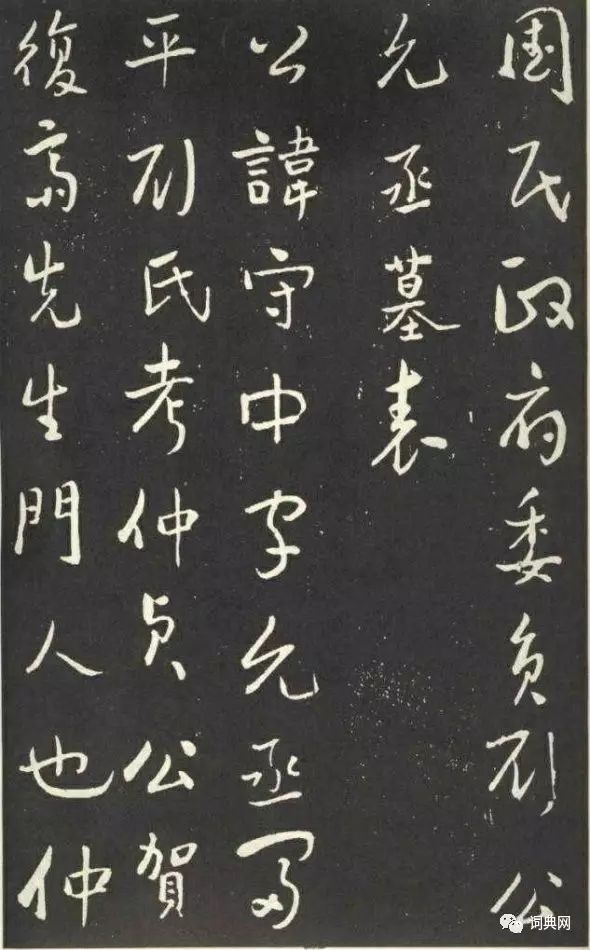 國民政府委員劉公
允丞墓表
公諱守中字允丞富
平劉氏考仲貞公賀
復齋先生門人也仲
词典网